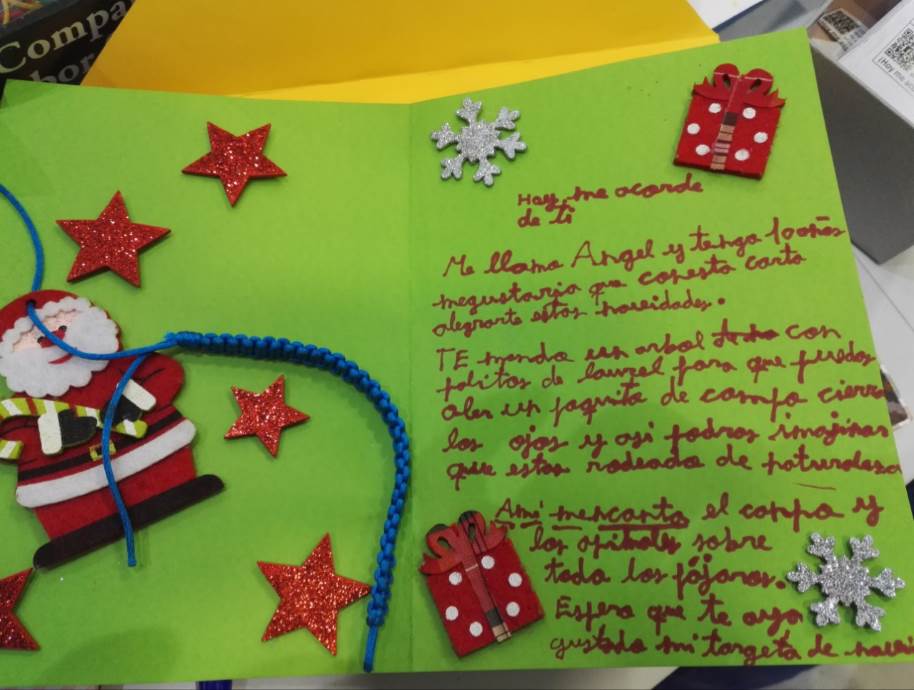 Compa
bor
¡Hoy me
Hoy me acorde
de ti
Me llamo Angel y tengo 100ños
megustaria que conesta carta
alegrarte estas naveidades.
TE mando un arbol con
palitos de laurel para que puedas
oler un poquito de campo cierra
los ojos y asi podras imajinar
que estas rodeado de
Amí mencanta el canpo y
los animales sobre
todo los pájaros.
Espero que te aya
gustado mi targeta de navi